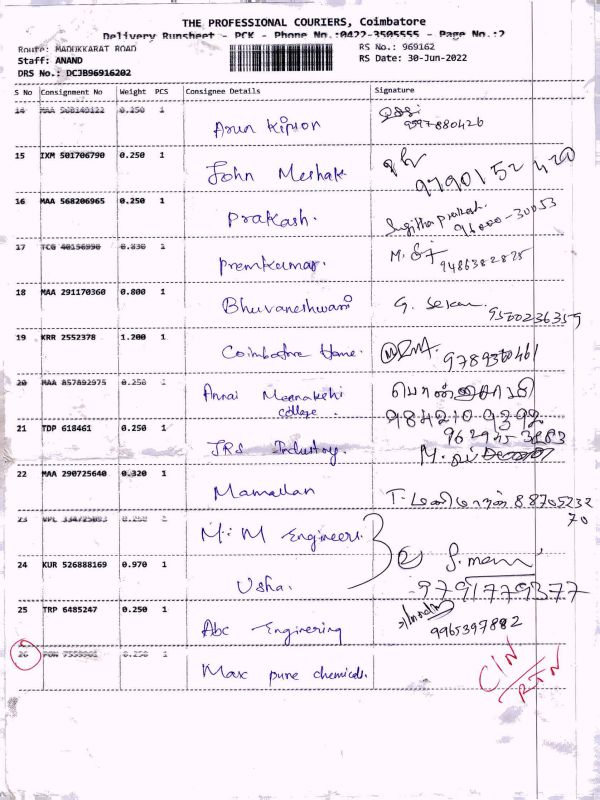 THE PROFESSIONAL COURIERS, Coimbatore
Delivery Runsheet - PCK - Phone No.:0422-3505555 - Page No.:2
Route: MADUKKARAI ROAD
RS No.: 969162
Staff: ANAND
RS Date: 30-Jun-2022
DRS No.: DCJB96916202
S No Consignment No Weight PCS Consignee Details Signature
14 MAA 568149122 0.250 1
Arun Kipson 9597880426
15 IXM 501706790 0.250 1
John Meshak 9790152420
16 MAA 568206965 0.250 1
Prakash. Sugitha prakash. 96000-30053
17 TCG 40156990 0.330 1
Premkumar. M. 9486382825
18 MAA 291170360 0.800 1
Bhuvaneshwari G. Sekar 9500236359
19 KRR 2552378 1.200 1
Coimbatore Home.
20 MAA 857892975 0.250 1
Annai Meenakshi
college. 984210 9392
21 TDP 618461 0.250 1
JRS Industry. M.
22 MAA 290725640 0.320 1
Mamallan T. 88705232
70
23 VPL 334725093 0.250 1
M.M Engineers.
24 KUR 526888169 0.970 1
Usha. 9791779377
25 TRP 6485247 0.250 1
Abc Enginering 9965397882
26 PON 7555961 0.250 1
Max pune chemicals. CIN
RTN